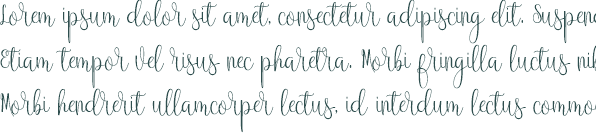 Lorem ipsum dolor sit amet, consectetur adipiscing elit. Suspen
Etiam tempor vel risus nec pharetra. Morbi fringilla luctus nib
Morbi hendrerit ullamcorper lectus, id interdum lectus commo